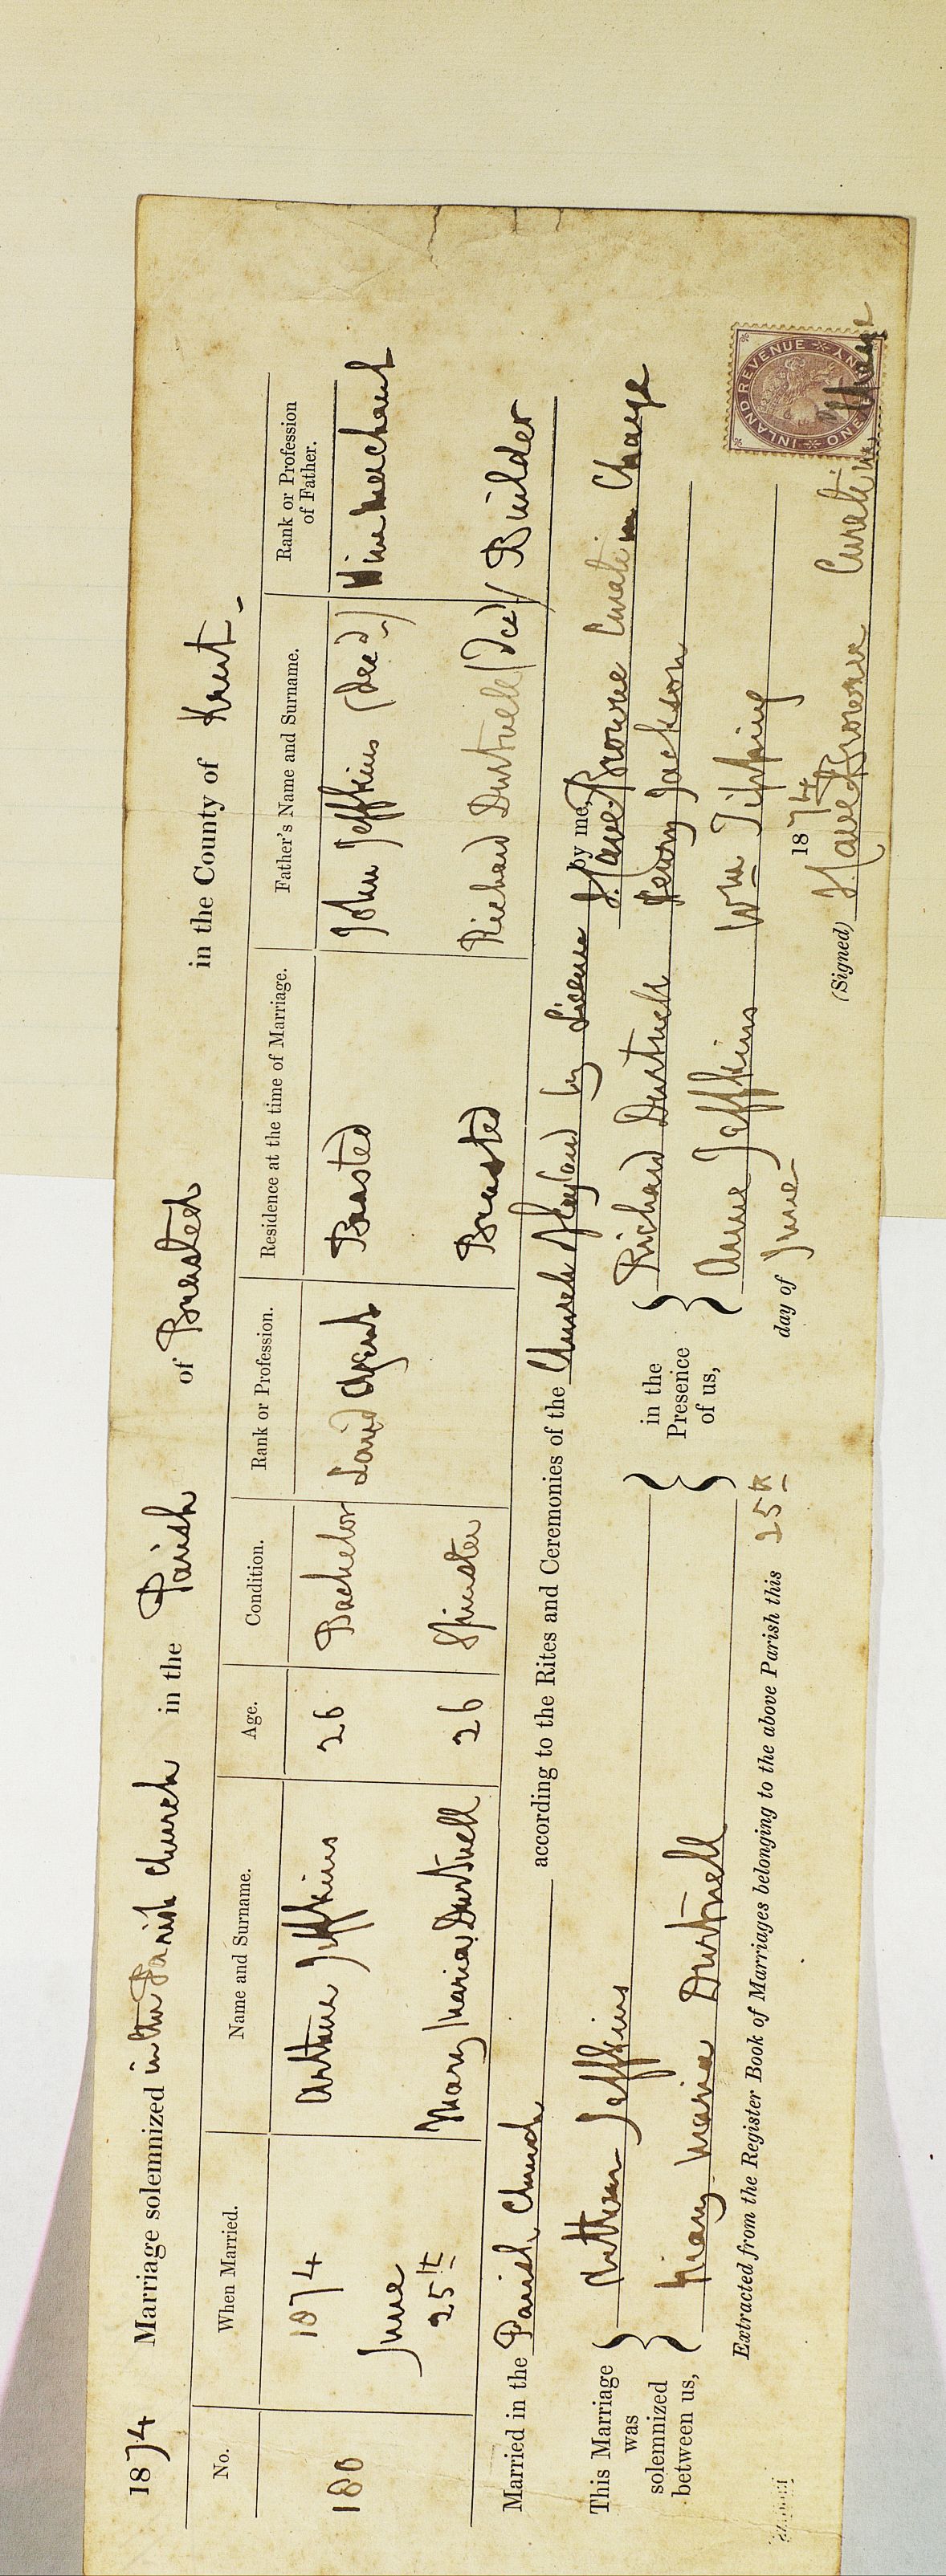 1874 Marriage solemnized in the Parish Church in the Parish of Brasted in the County of Kent.
No. When Married. Name and Surname. Age. Condition. Rank or Profession. Residence at the time of Marriage. Father's Name and Surname. Rank or Profession of Father.
180 1874 June 25th Arthur Jeffkins 26 Bachelor Land Agent Brasted John Jeffkins (decd) Wine Merchant
Mary Maria Durtnell 26 Spinster Brasted Richard Durtnell (Decd) Builder
Married in the Parish Church according to the Rites and Ceremonies of the Church of England by License by me, Browne Curate in Charge
This Marriage was solemnized between us, Arthur Jeffkins
Mary Maria Durtnell
in the Presence of us, Richard Durtnell Henry Jackson
Anne Jeffkins Wm Tipping
Extracted from the Register Book of Marriages belonging to the above Parish this 25th day of June 1874
(Signed) Browne Curate in Charge
INLAND REVENUE
ONE PENNY